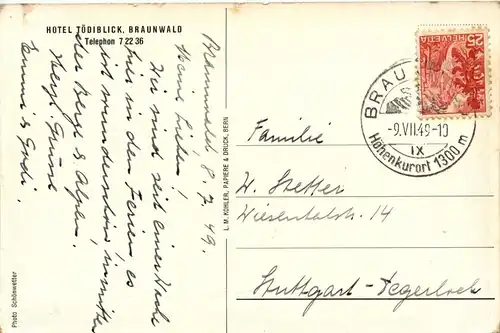 HOTEL TÖDIBLICK, BRAUNWALD
Telephon 7 22 36
Braunwald 8.7.49.
Meine Lieben!
Wir sind seit einer Woche
hier in den Ferien, es
ist wunderschön inmitten
der Berge & Alpen.
Herzl. Grüsse
Photo Schönwetter
L. M. KOHLER, PAPIERE & DRUCK, BERN
HELVETIA
25
BRAU
-9.VII.49-10
IX
Höhenkurort 1300 m
Familie
W. Stetter
Wiesentalstr. 14
Stuttgart-Degerloch